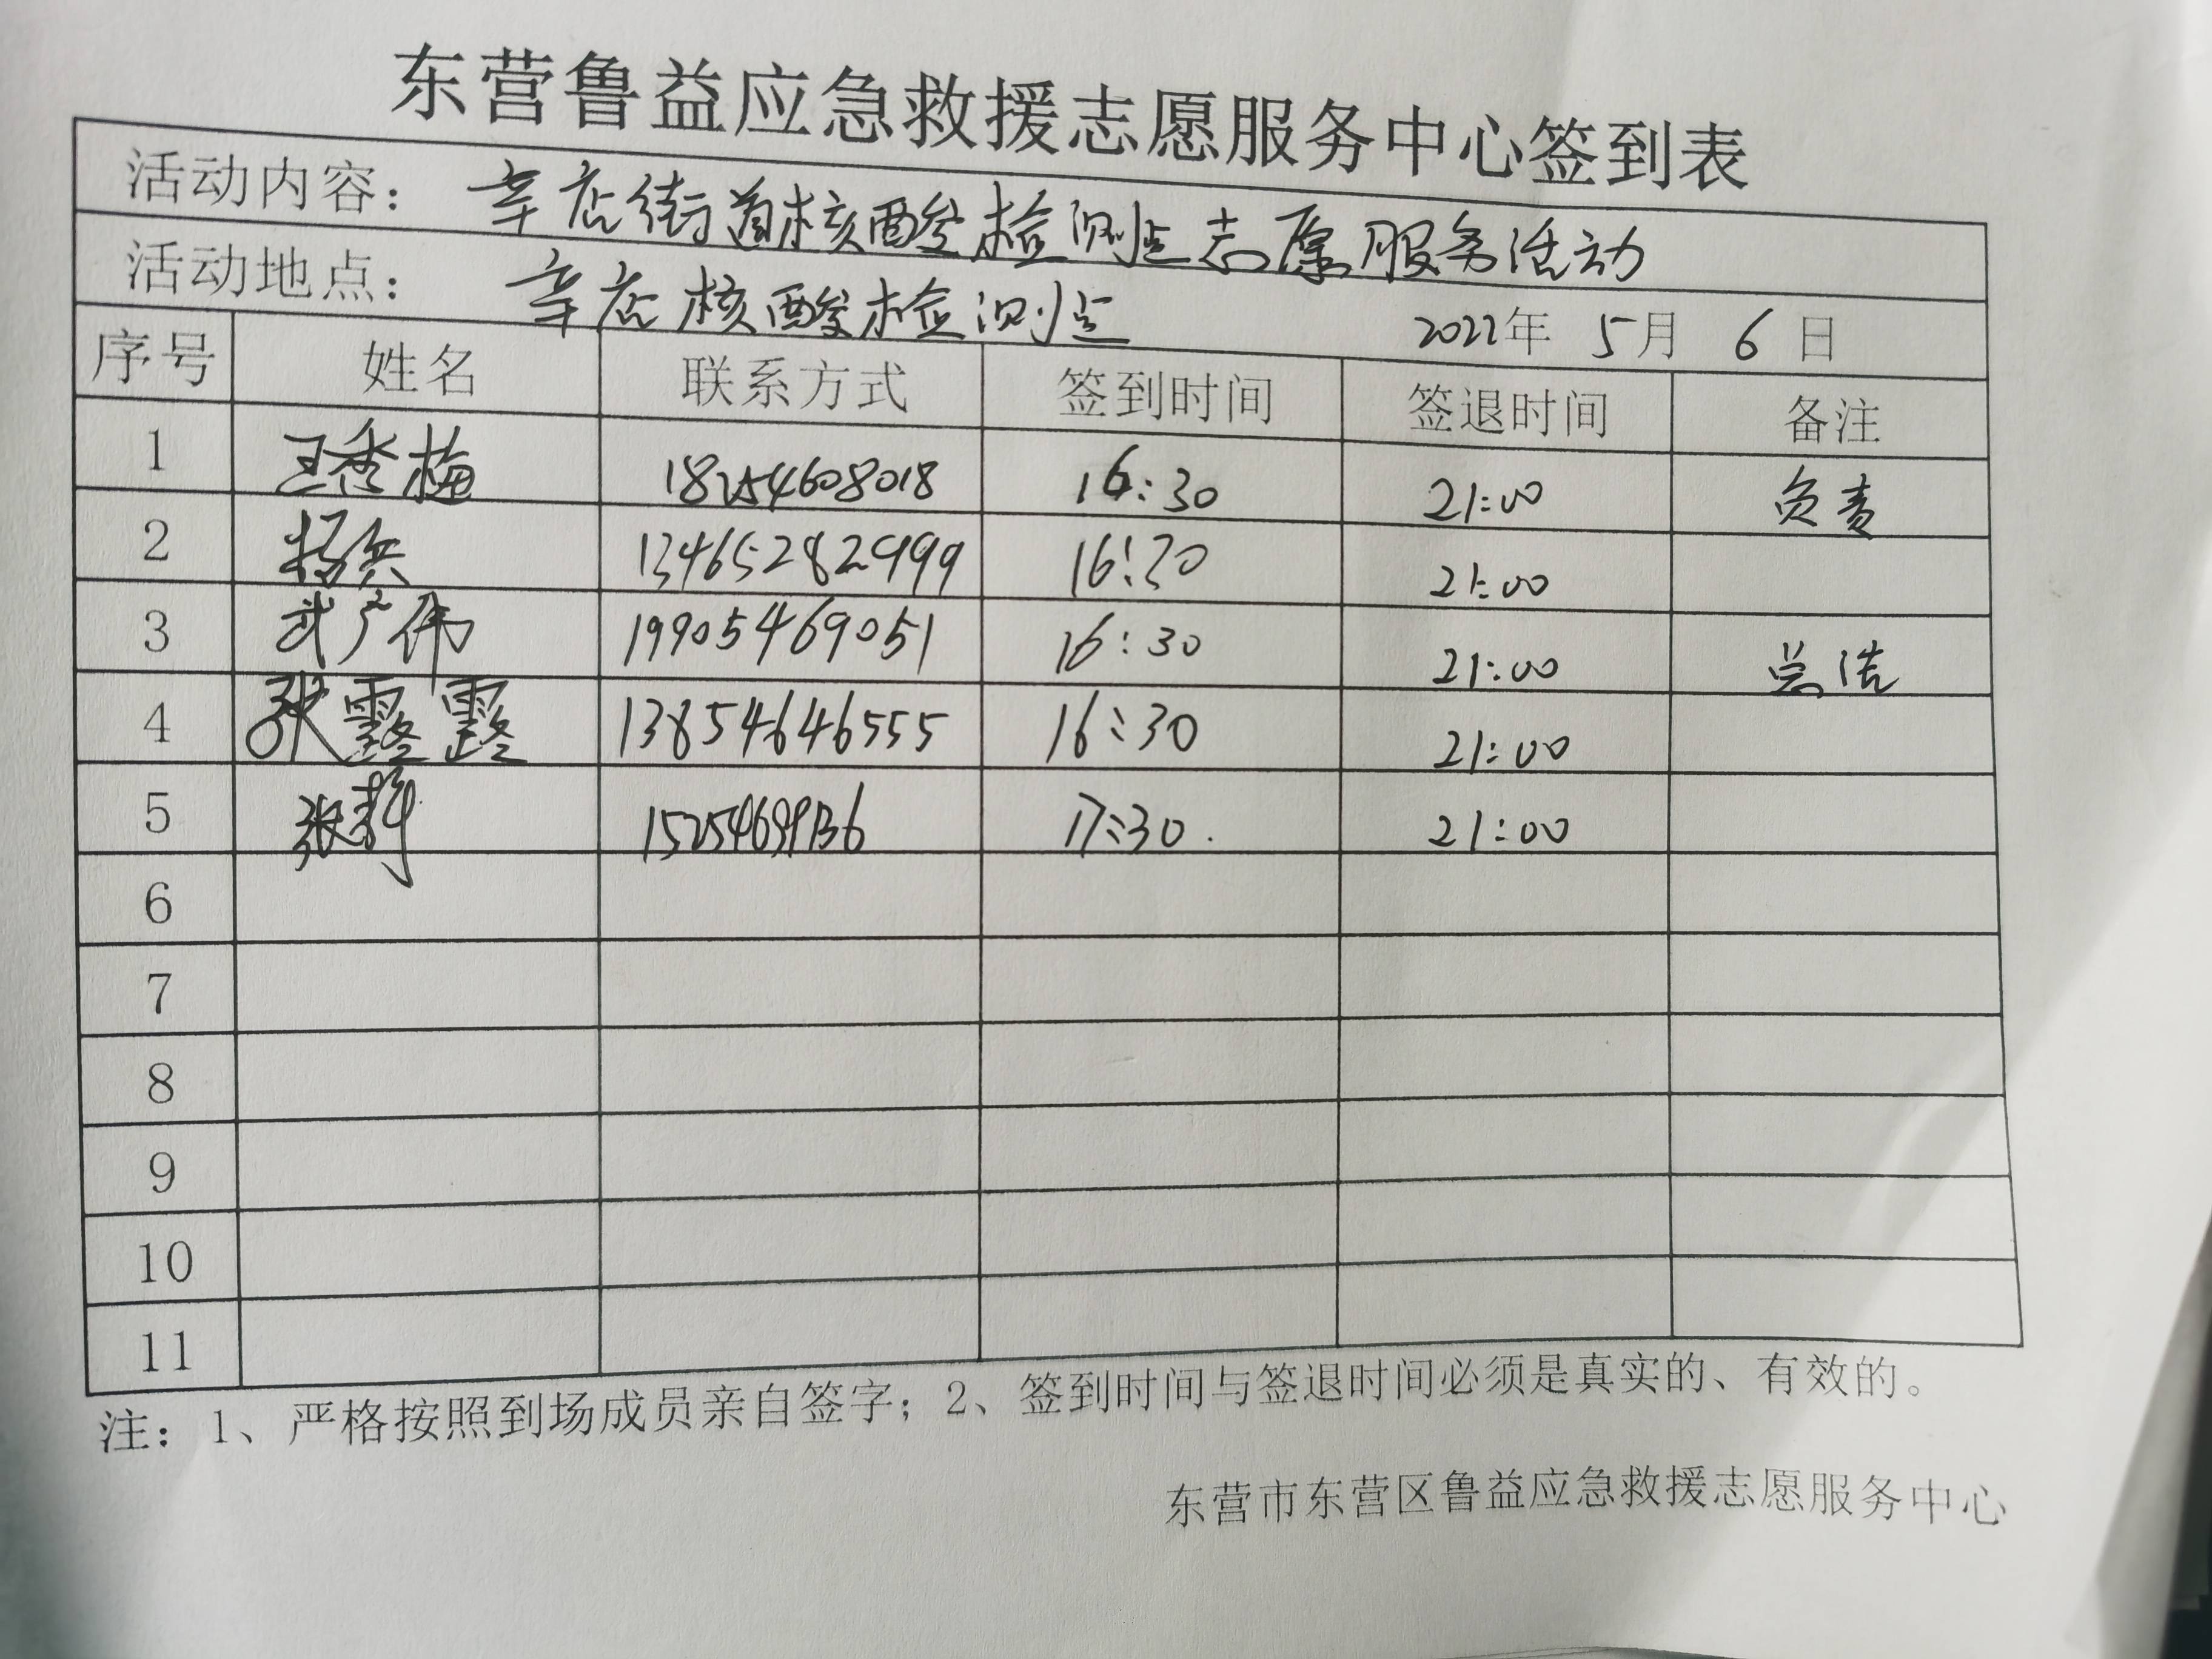 东营鲁益应急救援志愿服务中心签到表
活动内容： 辛店街道核酸检测点志愿服务活动
活动地点： 辛店核酸检测点 2022年 5月 6日
序号 姓名 联系方式 签到时间 签退时间 备注
1 王秀梅 18254608018 16:30 21:00 负责
2 杨兵 13465282999 16:30 21:00
3 武广伟 19905469051 16:30 21:00 总结
4 张露露 13854646555 16:30 21:00
5 张静 17:30. 21:00
6
7
8
9
10
11
注：1、严格按照到场成员亲自签字；2、签到时间与签退时间必须是真实的、有效的。
东营市东营区鲁益应急救援志愿服务中心